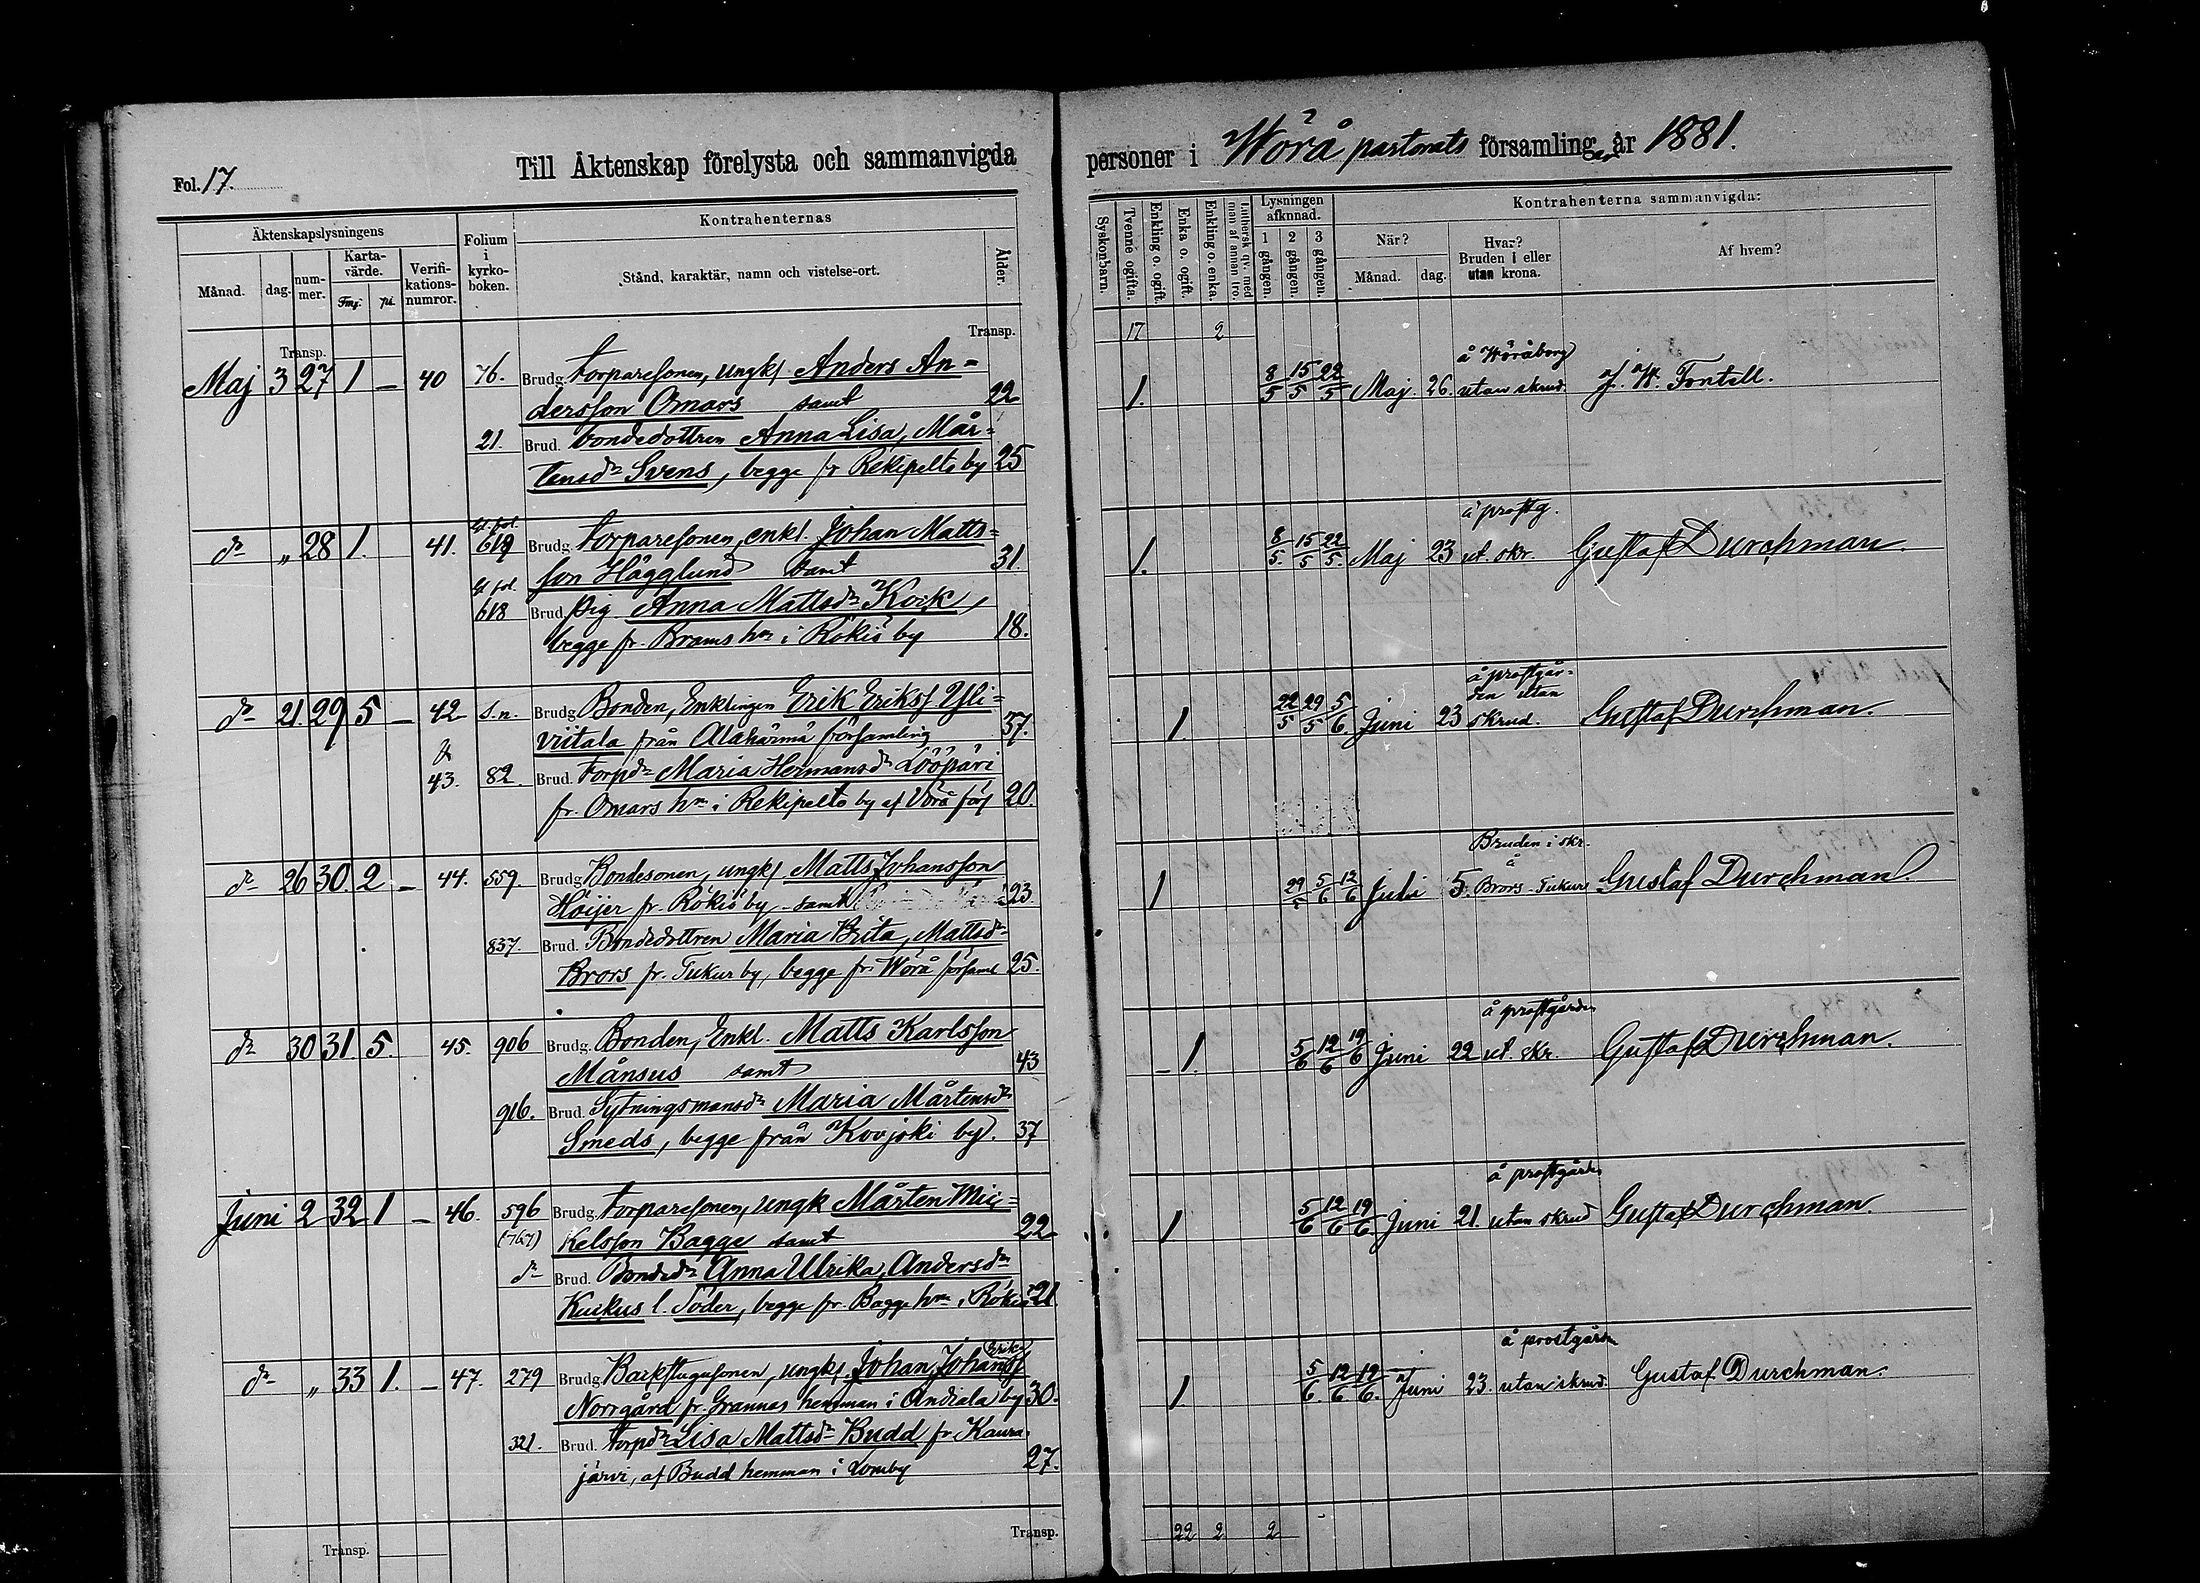 Fol. 17.
Till Äktenskap förelysta och sammanvigda
personer i Wörå pastorats församling år 1881.
Äktenskapslysningens
Månad. dag. nummer. Karta-värde. Fmf: pi. Verifi-kations-numror.
Folium i kyrko-boken.
Kontrahenternas
Stånd, karaktär, namn och vistelse-ort.
Ålder.
Syskonbarn. Tvenne ogifta. Enkling o. ogift. Enka o. ogift. Enkling o. enka. Luthersk qv. med man af annan tro.
Lysningen afknnad.
1 gången. 2 gången. 3 gången.
Kontrahenterna sammanvigda:
När?
Månad. dag.
Hvar? Bruden i eller utan krona.
Af hvem?
Transp. Transp. 17 2
Maj 3 27 1 — 40 76. Brudg. Torparesonen, ungk. Anders An-
dersson Omars samt 22
21. Brud. bondedottren Anna Lisa, Mår-
tensdr Svens, begge fr Rekipelto by 25
1. 8/5 15/5 22/5 Maj 26. å Wöråborg utan skrud. af W. Fontell.
dr „ 28 1. 41. 619 Brudg. Torparesonen, enkl. Johan Matts-
son Hägglund samt 31.
618 Brud. Pig. Anna Mattsdr Kock,
begge fr. Brams hn i Rökiö by 18.
1. 8/5. 15/5 22/5. Maj 23 å prostg. ut. skr. Gustaf Durchman.
dr 21. 29 5 — 42 & 43. S.n. Brudg Bonden, Enklingen Erik Eriks. Yli-
viitala från Alahärmä församling 37.
82. Brud. Torpdr Maria Hermansdr Lööpäri
fr. Omars hn i Rekipelto by af Vörå förs 20.
1. 22/5 29/5 5/6 Juni 23 å prostgår-den utan skrud. Gustaf Durchman.
dr 26 30 2 — 44. 559. Brudg Bondesonen, ungk. Matts Johansson
Höijer fr. Rökiö by samt 23
837. Brud. Bondedottren Maria Brita, Mattsdr
Brors fr. Tukur by, begge fr. Wörå församl 25.
1 29/5 5/6 12/6 Juli 5. Bruden i skr. å Brors Tukur Gustaf Durchman.
dr 30 31 5. 45. 906 Brudg. Bonden, Enkl. Matts Karlsson
Månsus samt 43
916. Brud. Sytningsmansdr Maria Mårtensdr
Smeds, begge från Kovjoki by. 37
1. 5/6 12/6 19/6 Juni 22 å prostgården ut. skr. Gustaf Durchman.
Juni 2 32 1 — 46. 596 (767) Brudg. Torparesonen, ungk Mårten Mic-
kelsson Bagge samt 22
dr Brud. Bondedr Anna Ulrika, Andersdr
Kuckus l. Söder, begge fr. Bagge hn i Rökiö 21
1 5/6 12/6 19/6 Juni 21. å prostgården utan skrud Gustaf Durchman.
dr „ 33 1. — 47. 279 Brudg Backstugusonen, ungk. Johan Johanss Eriks
Norrgård fr. Grannas hemman i Andiala by 30.
321. Brud. Torpdr Lisa Mattsdr Budd fr Kaura-
järvi, af Budd hemman i Lomby 27.
1. 5/6. 12/6. 19/6. Juni 23. å prostgården utan skrud. Gustaf Durchman.
Transp. Transp. 22 2 2